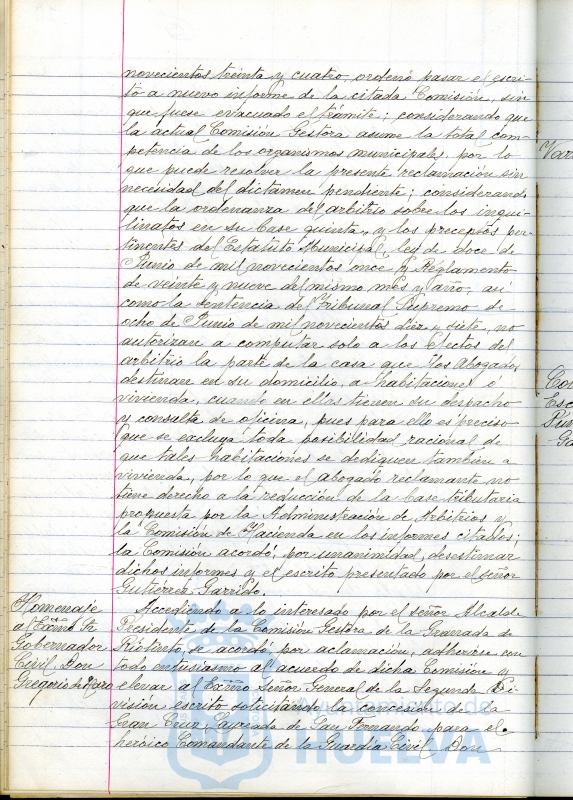 novecientos treinta y cuatro, ordenó pasar el escri-
to a nuevo informe de la citada Comisión, sin
que fuese evacuado el trámite; considerando que
la actual Comisión Gestora asume la total com-
petencia de los organismos municipales, por lo
que puede resolver la presente reclamación sin
necesidad del dictamen pendiente; considerando
que la ordenanza del arbitrio sobre los inqui-
linatos en su base quinta, y los preceptos per-
tinentes del Estatuto Municipal, ley de doce de
Junio de mil novecientos once y Reglamento
de veinte y nueve del mismo mes y año, así
como la sentencia del Tribunal Supremo de
ocho de Junio de mil novecientos diez y siete, no
autorizan a computar solo a los efectos del
arbitrio la parte de la casa que los Abogados
destinan en su domicilio, a habitaciones o
vivienda, cuando en ellas tienen su despacho
y consulta de oficina, pues para ello es preciso
que se excluya toda posibilidad racional de
que tales habitaciones se dediquen también a
vivienda, por lo que el abogado reclamante no
tiene derecho a la reducción de la base tributaria
propuesta por la Administración de Arbitrios y
la Comisión de Hacienda en los informes citados;
la Comisión acordó, por unanimidad, desestimar
dichos informes y el escrito presentado por el señor
Gutiérrez Garrido.
Homenaje
al Exmo Sr
Gobernador
Civil Don
Gregorio de
Accediendo a lo interesado por el señor Alcalde
Presidente de la Comisión Gestora de la Granada de
Riotinto, se acordó, por aclamación, adherirse con
todo entusiasmo al acuerdo de dicha Comisión y
elevar al Exmo Señor General de la Segunda Di-
visión escrito solicitando la concesión de la
Gran Cruz Laureada de San Fernando para el
heróico Comandante de la Guardia Civil Don
HUELVA